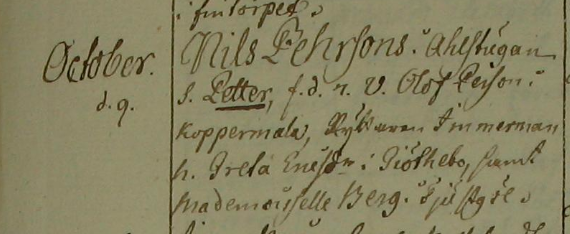 i fintorpet.
October. Nils Pehrsons. i Ahlstugan
d. 9. S. Petter, f. d. 7. V. Olof Peison i
Koppermåla, Ryttaren Immerman
h. Greta Enesd:r i Giöthebo, samt
Mademouselle Berg. i